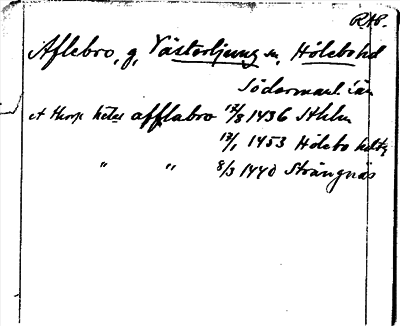 RAP.
Aflebro, g, Västerljung sn, Hölebo hd
Södermanl. län
et thorp hetes afflabro 17/8 1436 Sthlm
17/1 1453 Hölebo hdtg
" " 8/3 1440 Strängnäs